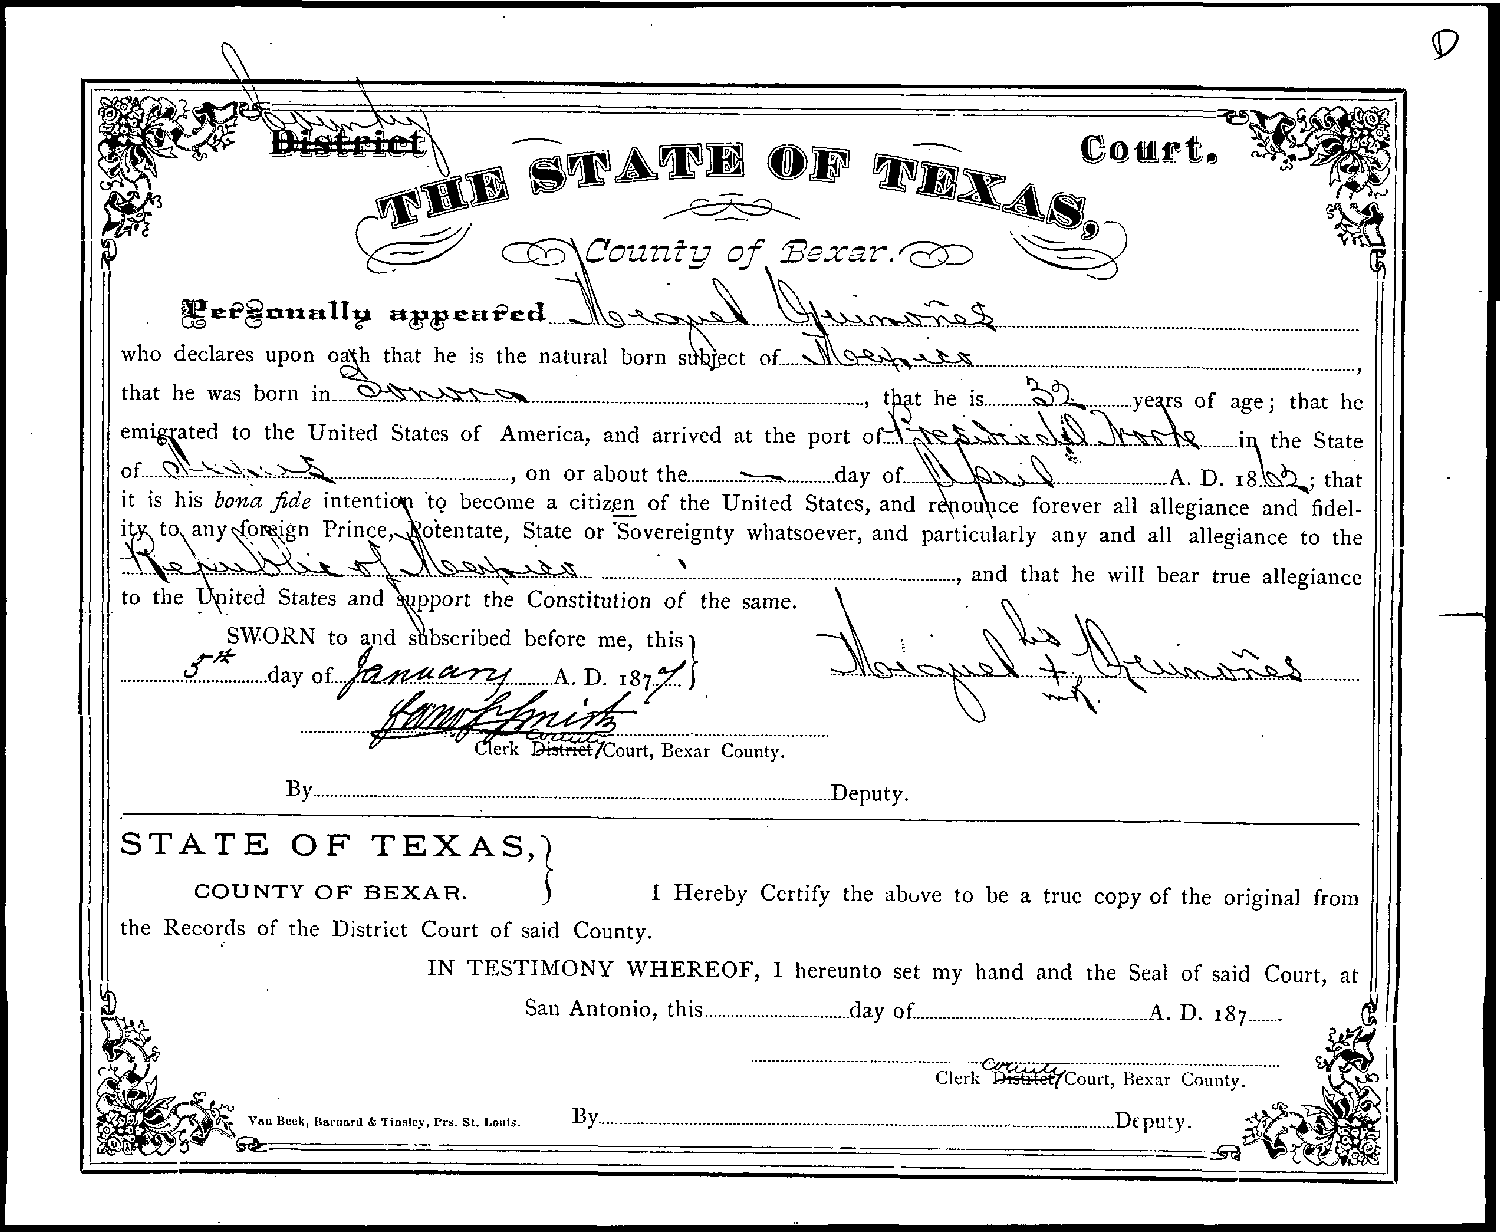 D
County
District Court.
THE STATE OF TEXAS,
County of Bexar.
Personally appeared Miguel Quinoñes
who declares upon oath that he is the natural born subject of Mexico,
that he was born in Sonora, that he is 32 years of age; that he
emigrated to the United States of America, and arrived at the port of Presidio del Norte in the State
of Texas, on or about the — day of April A. D. 1862; that
it is his bona fide intention to become a citizen of the United States, and renounce forever all allegiance and fidel-
ity to any foreign Prince, Potentate, State or Sovereignty whatsoever, and particularly any and all allegiance to the
Republic of Mexico, and that he will bear true allegiance
to the United States and support the Constitution of the same.
SWORN to and subscribed before me, this
5th day of January A. D. 1877
Miguel his x mk. Quinoñes
Sam S Smith
County
Clerk District Court, Bexar County.
By Deputy.
STATE OF TEXAS,
COUNTY OF BEXAR.
I Hereby Certify the above to be a true copy of the original from
the Records of the District Court of said County.
IN TESTIMONY WHEREOF, I hereunto set my hand and the Seal of said Court, at
San Antonio, this day of A. D. 187
County
Clerk District Court, Bexar County.
Van Beek, Barnard & Tinsley, Prs. St. Louis.
By Deputy.